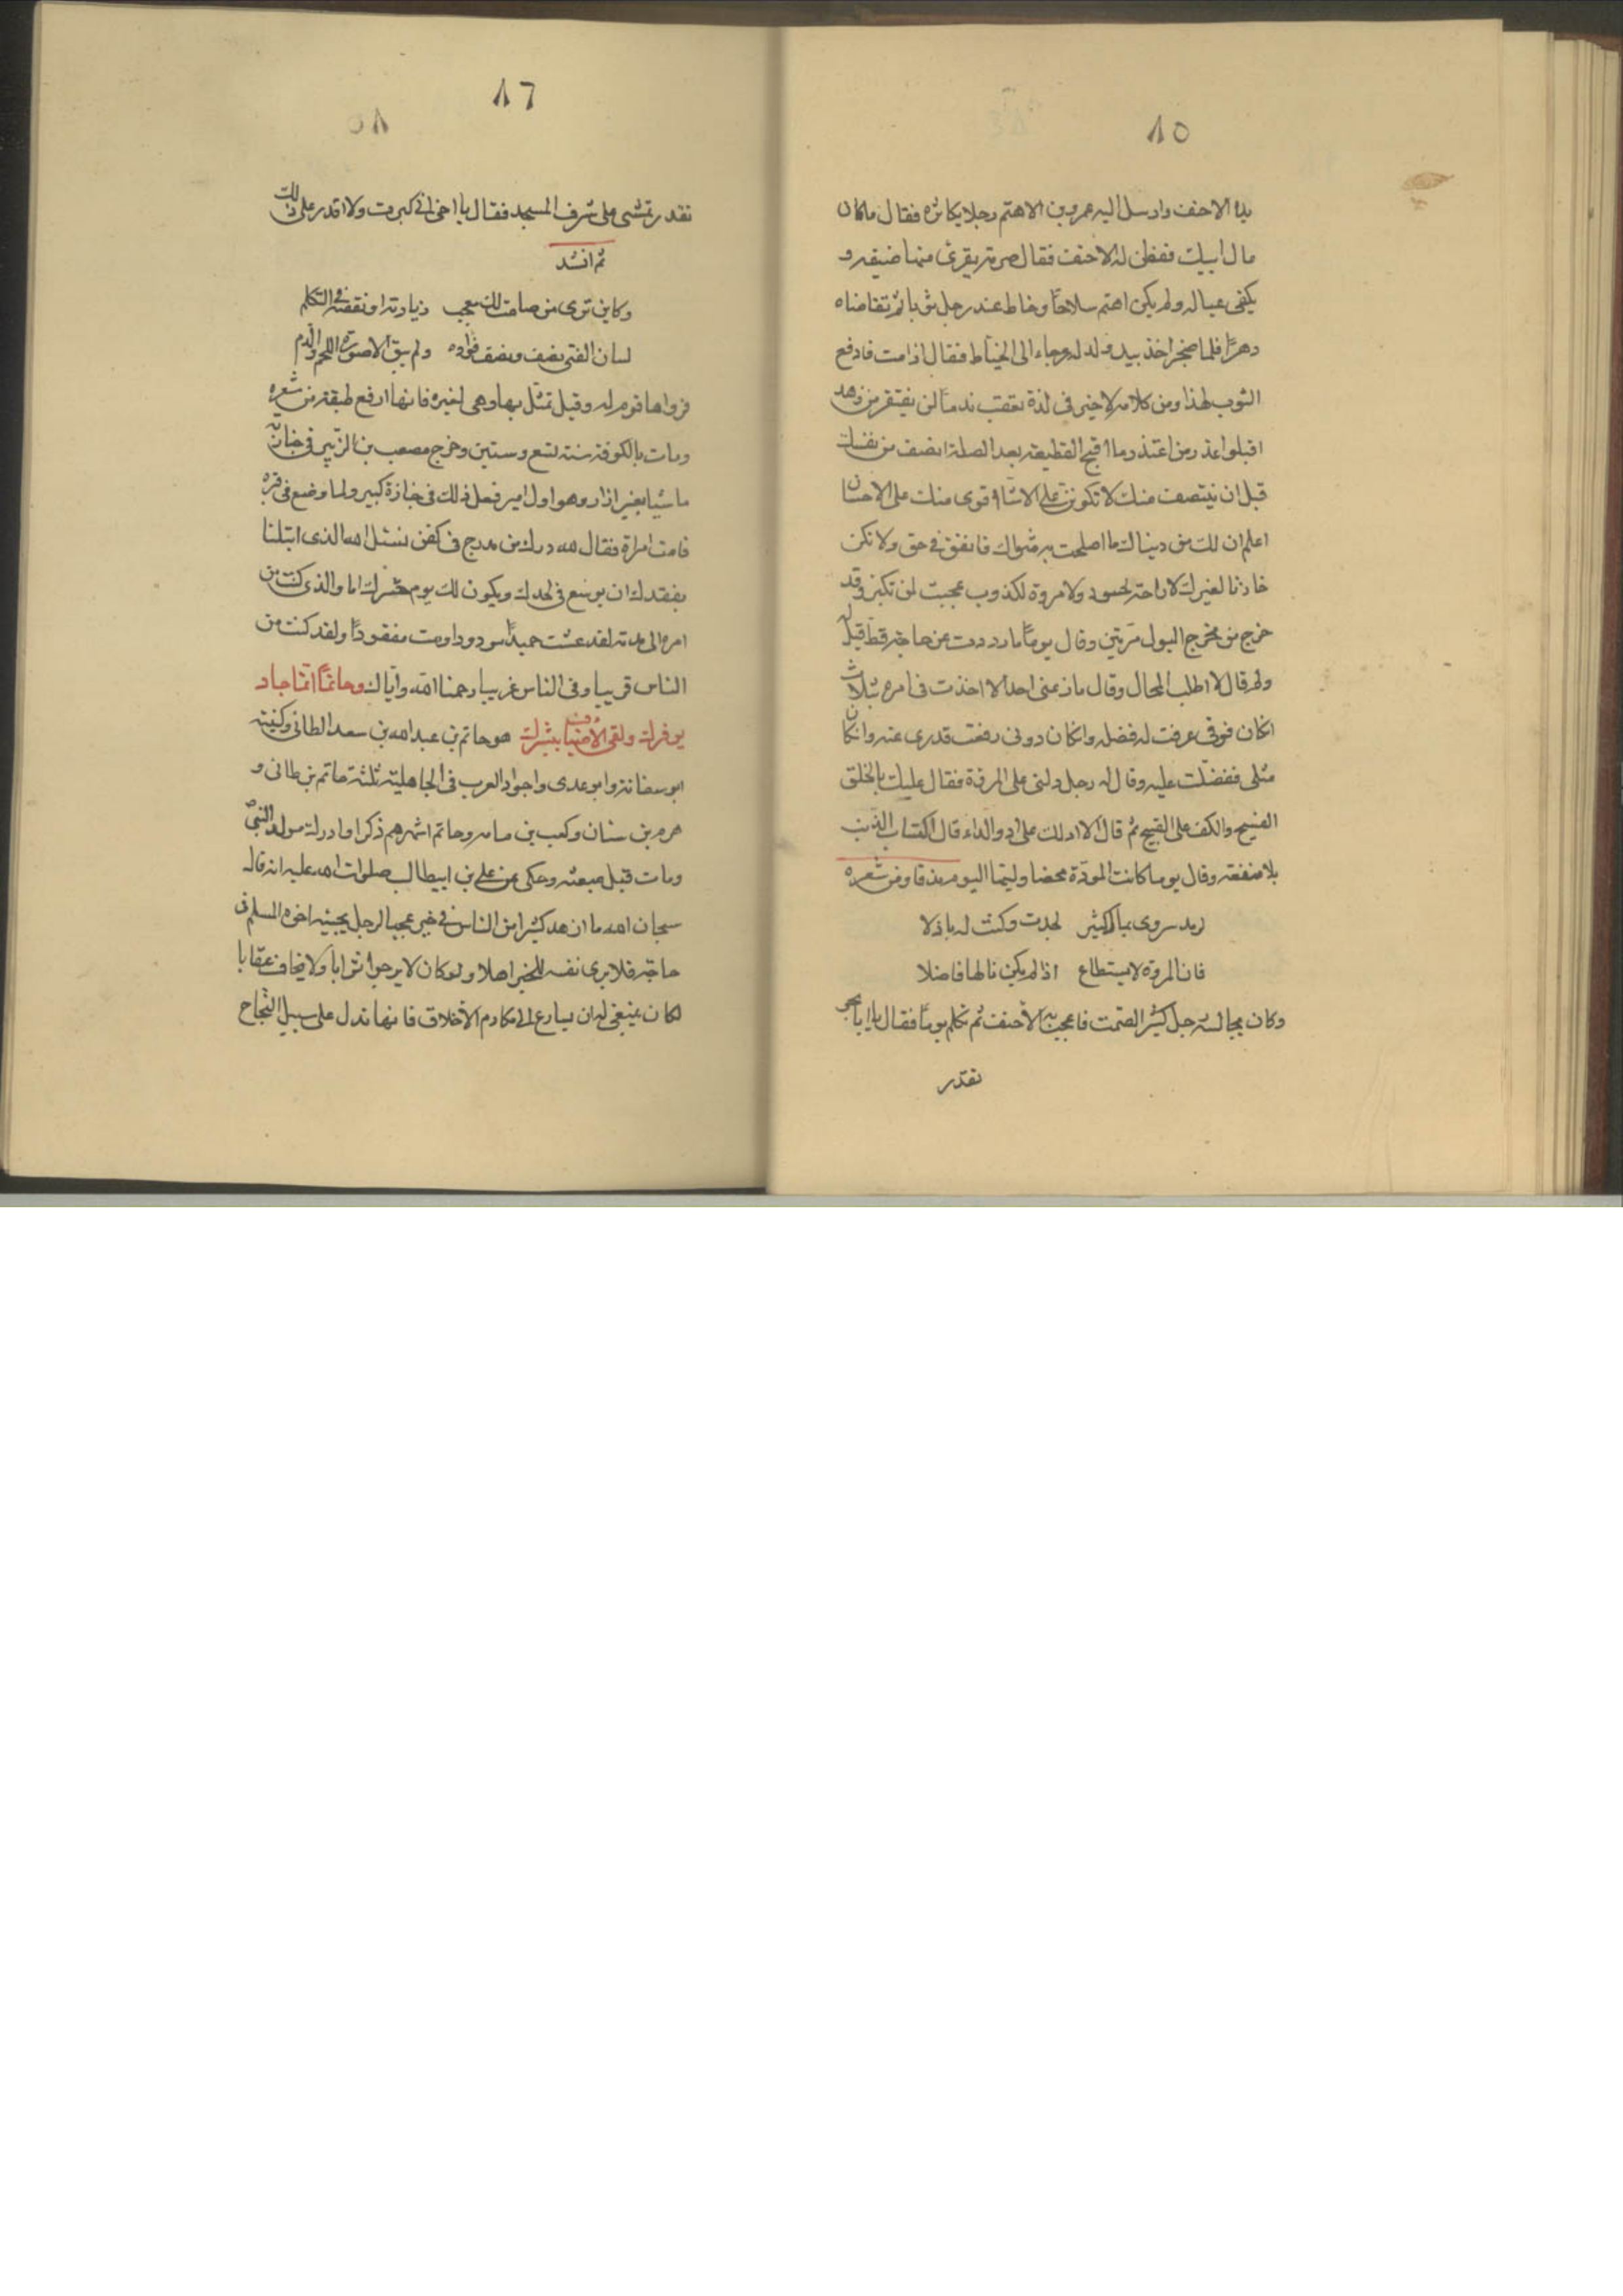 ٨٥
يده الاحنف وارسل اليه عمرو بن الاهتم رجلا يكاثره فقال ماكان
مال ابيك ففطن له الاحنف فقال صرمة يقرى منها ضيفه و
يكفى عياله ولم يكن اهتم سلاحا وخاط عند رجل ثوبا ثم تقاضاه
دهرًا فلما ضجر اخذ بيد ولد له وجاء الى الخياط فقال اذا مت فادفع
الثوب لهذا ومن كلامه لاخير فى لذة تعقب ندمًا لن يفتقر من زهد
اقبلوا عذر من اعتذر وما اقبح القطيعة بعد الصلة انصف من نفسك
قبل ان ينتصف منك لا تكونن على الاساة اقوى منك على الاحسان
اعلم ان لك من دنياك ما اصلحت به مثواك فانفق فى حق ولا تكن
خازنا لغيرك لا راحة لحسود ولا مروة لكذوب عجبت لمن تكبر وقد
خرج من مخرج البول مرتين وقال يومًا ما رددت عن حاجة قط قيل
ولم قال لا اطلب المحال وقال ما نازعنى احد الا اخذت فى امره بثلاث
انكان فوقى عرفت له فضله وانكان دونى رفعت قدرى عنه وانكان
مثلى تفضلت عليه وقال له رجل دلنى على المروة فقال عليك بالخلق
الفسيح والكف على القبيح ثم قال الا ادلك على ادوا الداء قال اكتساب الذنب
بلا منفعة وقال يوما كانت المودة محضا وليتها اليوم مذقا ومن شعره
لجدت وكنت له باذلا
فان المروة لا يستطاع اذا لم يكن مالها فاضلا
وكان يجالسه رجل كثير الصمت فاعجب به الاحنف ثم تكلم يومًا فقال يا ابا بحر
تقدر
٨٦
تقدر تمشى على شرف المسجد فقال يا اخى انى كبرت ولا اقدر على ذلك
ثم انشد
وكاين ترى من صامت لك معجب زيادته او نقصه فى التكلم
لسان الفتى نصف ونصف فؤاده ولم يبق الا صورة اللحم والدم
فرواها قوم له وقيل تمثل بها وهى لغيره فانها ارفع طبقة من شعره
ومات بالكوفة سنة تسع وستين وخرج مصعب بن الزبير فى جنازته
ماشيا بغير ازار وهو اول امير فعل ذلك فى جنازة كبير ولما وضع فى قبره
قامت امراة فقال لله درك من مدرج فى كفن نسئل الله الذى ابتلنا
بفقدك ان يوسع فى لحدك ويكون لك يوم حشرك اما والذى كنت من
امره الى مدته لقد عشت حميدًا مودودا ومت مفقودًا ولقد كنت من
الناس قريبا وفى الناس غريبا رحمنا الله واياك وحاتمًا انما جاد
بوفرك ولقى الاضياف ببشرك هو حاتم بن عبد الله بن سعد الطائى وكنيته
ابو سفانة وابو عدى واجواد العرب فى الجاهلية ثلثة حاتم بن طائى و
هرم بن سنان وكعب بن مامه وحاتم اشهرهم ذكرا وادرك مولد النبى
ومات قبل مبعثه وحكى عن على بن ابيطالب صلوات الله عليه انه قال
سبحان الله ما ازهد كثيرا من الناس فى خير عجبا لرجل يجيئه اخوه المسلم فى
حاجة فلا يرى نفسه للخير اهلا ولوكان لا يرجوا ثوابا ولا يخاف عقابا
لكان ينبغى له ان يسارع الى مكارم الاخلاق فانها تدل على سبيل النجاح